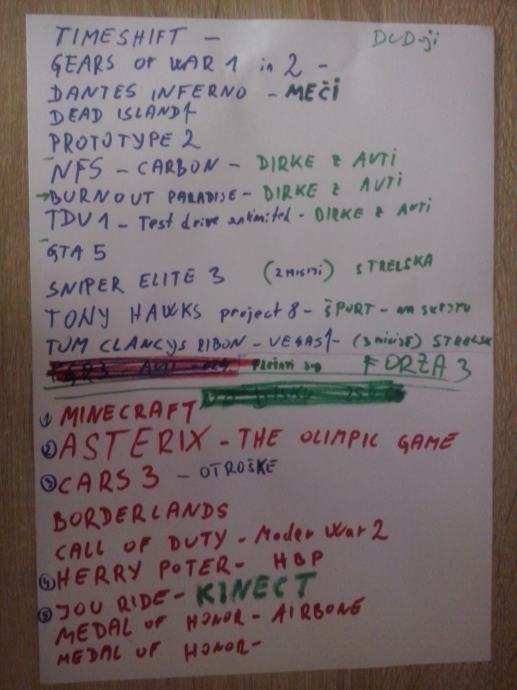 TIMESHIFT - DVD-ji
GEARS OF WAR 1 in 2 -
DANTES INFERNO - MEČI
DEAD ISLAND 1
PROTOTYPE 2
NFS - CARBON - DIRKE Z AVTI
→BURNOUT PARADISE - DIRKE Z AVTI
TDU 1 - Test drive unlimited - DIRKE Z AVTI
GTA 5
SNIPER ELITE 3 STRELSKA
TONY HAWKS project 8 - ŠPORT -
TOM CLANCYS - VEGAS 1 -
FORZA 3
① MINECRAFT
② ASTERIX - THE OLIMPIC GAME
③ CARS 3 - OTROŠKE
BORDERLANDS
CALL OF DUTY - Moder War 2
④ HERRY POTER - HBP
⑤ JOU RIDE - KINECT
MEDAL OF HONOR - AIRBONE
MEDAL OF HONOR -